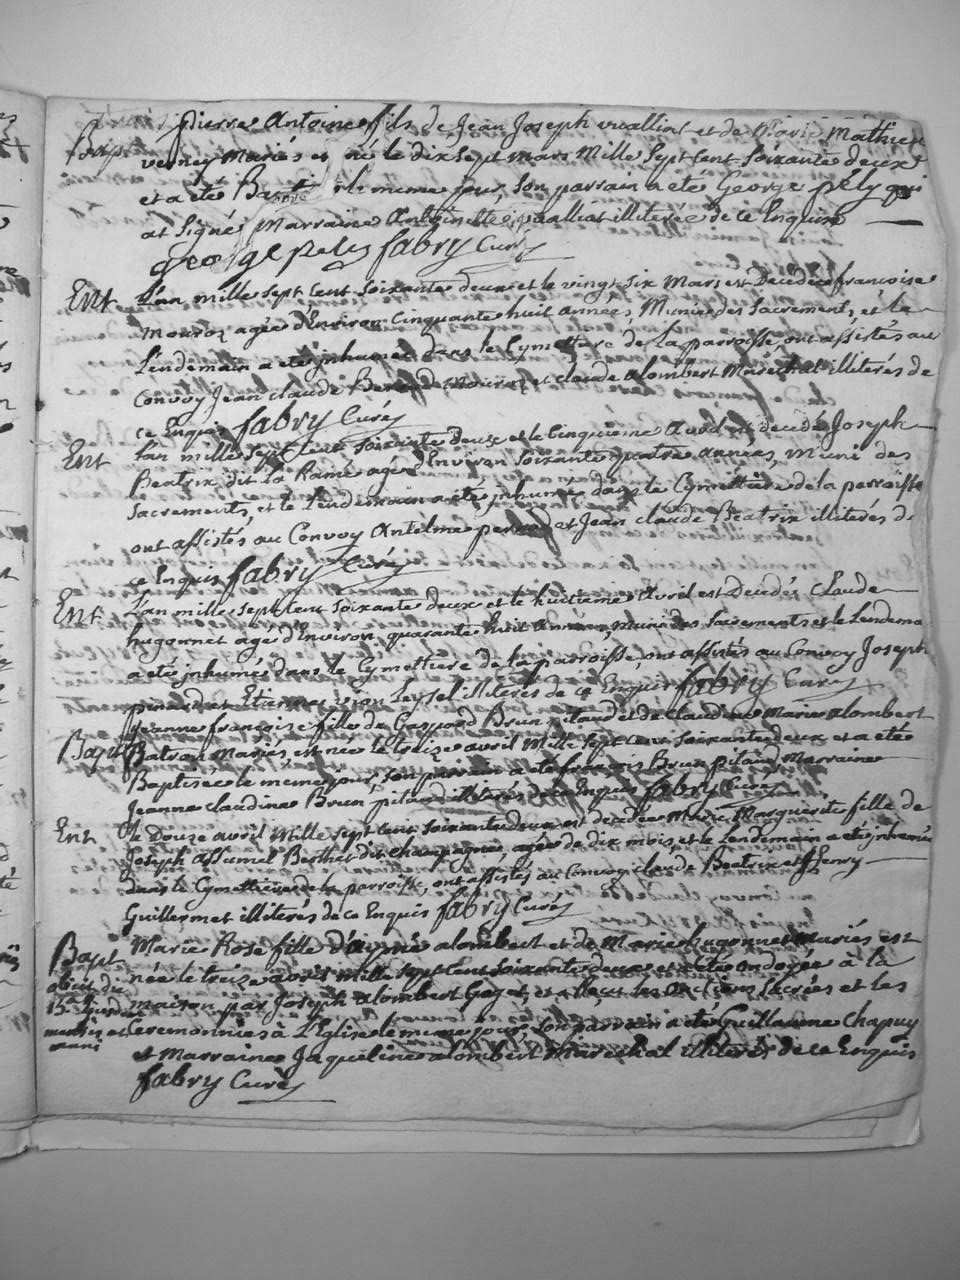 Bapt
pierre Antoine fils de Jean Joseph vualliat et de Marie Mathieu
verney Mariés est né le dix sept mars Mille sept cent soixante deux
et a eté Baptisé le meme jour, son parrain a eté George pély qui
at signé Marraine Antoinette vualliat illiterée de ce Enquise
george pely fabry Curés
Ent L'an mille sept cent soixante deux et le vingt six Mars est Decedée francoise
Mouroz agée d'Environ Cinquante huit années, Munie des Sacrements, et le
Lendemain a eté inhumée dans le Cymettiere de la parroisse, ont assistés au
Convoy Jean claude Mouroz et claude alombert Marechal illiterés de
ce Enquis fabry Curés
Ent L'an mille sept cent soixante deux et le Cinquieme Avril est decedé Joseph
Beatrix dit La Rame agé d'Environ soixante quatre années, muni des
Sacrements, et le Lendemain a eté inhumé dans le Cymettiere de la parroisse
ont assistés au Convoy Antelme et Jean claude Beatrix illiterés de
ce Enquis fabry Curés
Ent L'an mille sept cent soixante deux et le huitieme Avril est Decedés Claude
hugonnet agé d'Environ quarante huit années, muni des Sacrements et le Lendema
a eté inhumé dans le Cymettiere de la parroisse, ont assistés au Convoy Joseph
pinard et Etienne illiterés de ce Enquis fabry Curés
Jeanne françoise fille de Gaspard Brun pilaud et de Claudine Marie alombert
Bapt Mariés est née le treize avril Mille sept cent soixante deux et a eté
Baptisée le même jour, son parrain a eté françois Brun pilaud Marraine
Jeanne claudine Brun pilaud illiterés de ce Enquis fabry Curés
Ent Le Douze avril Mille sept cent soixante deux est decedée Marie Marguerite fille de
Joseph assumel Berthet dit champagne agée de dix mois, et le Lendemain a eté inhumée
dans le Cymettiere de la parroisse, ont assistés au Convoy claude Beatrix et Henry
Guillermet illiterés de ce Enquis fabry Curés
Bapt Marie Rose fille d'aymé alombert et de Marie hugonnet Mariés est
née le treize avril mille sept cent soixante deux et a eté ondoyée à la
maison par Joseph alombert Goget, et a Reçut les onctions sacrées et les
Ceremonnies à L'Eglise le meme jour, son parrain a eté Guillaume Chapuy
et Marraine Jaqueline alombert Marechal illiterés de ce Enquis
fabry Curés